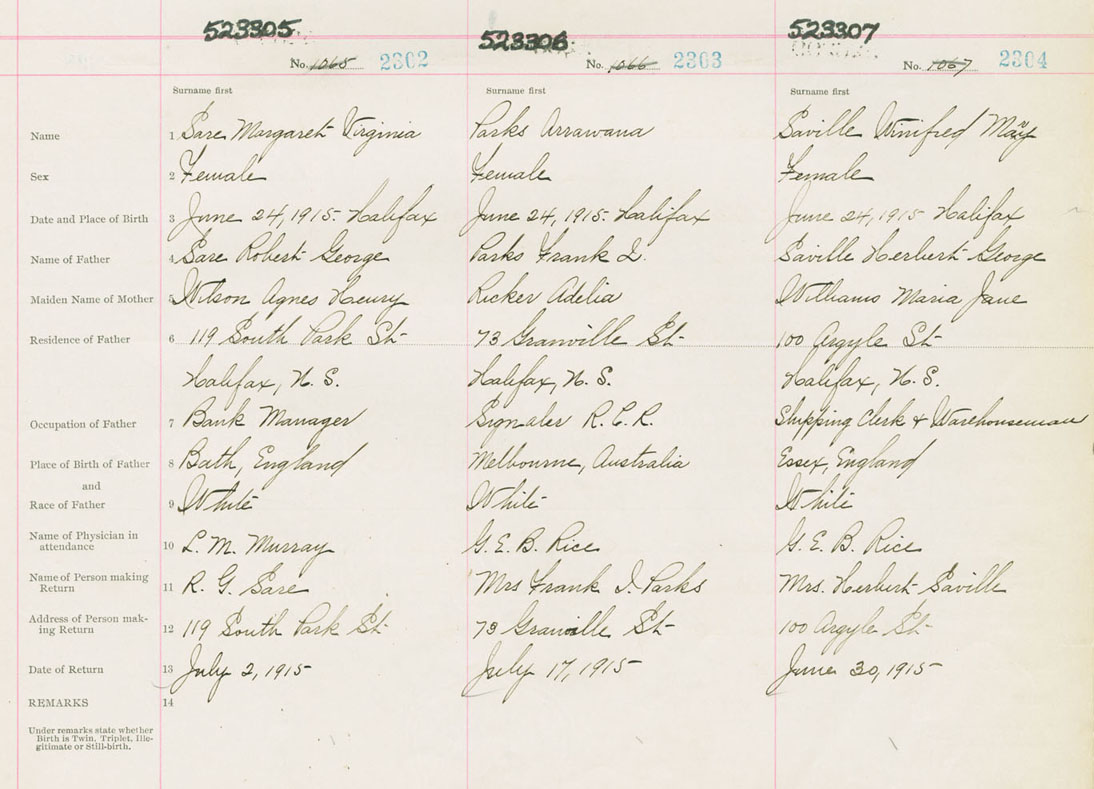 523305 523306 523307
No. 1065 2302 No. 1066 2303 No. 1067 2304
Surname first Surname first Surname first
Name 1 Sare Margaret Virginia Parks Arrawana Saville Winifred May
Sex 2 Female Female Female
Date and Place of Birth 3 June 24, 1915 - Halifax June 24, 1915 - Halifax June 24, 1915 Halifax
Name of Father 4 Sare Robert George Parks Frank I. Saville Herbert George
Maiden Name of Mother 5 Wilson Agnes Heury Ricker Adelia Williams Maria Jane
Residence of Father 6 119 South Park St- 73 Granville St- 100 Argyle St-
Halifax, N. S. Halifax, N. S. Halifax, N. S.
Occupation of Father 7 Bank Manager Signaler R. C. R. Shipping Clerk & Warehouseman
Place of Birth of Father 8 Bath, England Melbourne, Australia Essex, England
and
Race of Father 9 White White White
Name of Physician in
attendance 10 L. M. Murray G. E. B. Rice G. E. B. Rice
Name of Person making
Return 11 R. G. Sare Mrs Frank I. Parks Mrs. Herbert Saville
Address of Person mak-
ing Return 12 119 South Park St- 73 Granville St- 100 Argyle St-
Date of Return 13 July 2, 1915 July 17, 1915 June 30, 1915
REMARKS 14
Under remarks state whether
Birth is Twin, Triplet, Ille-
gitimate or Still-birth.